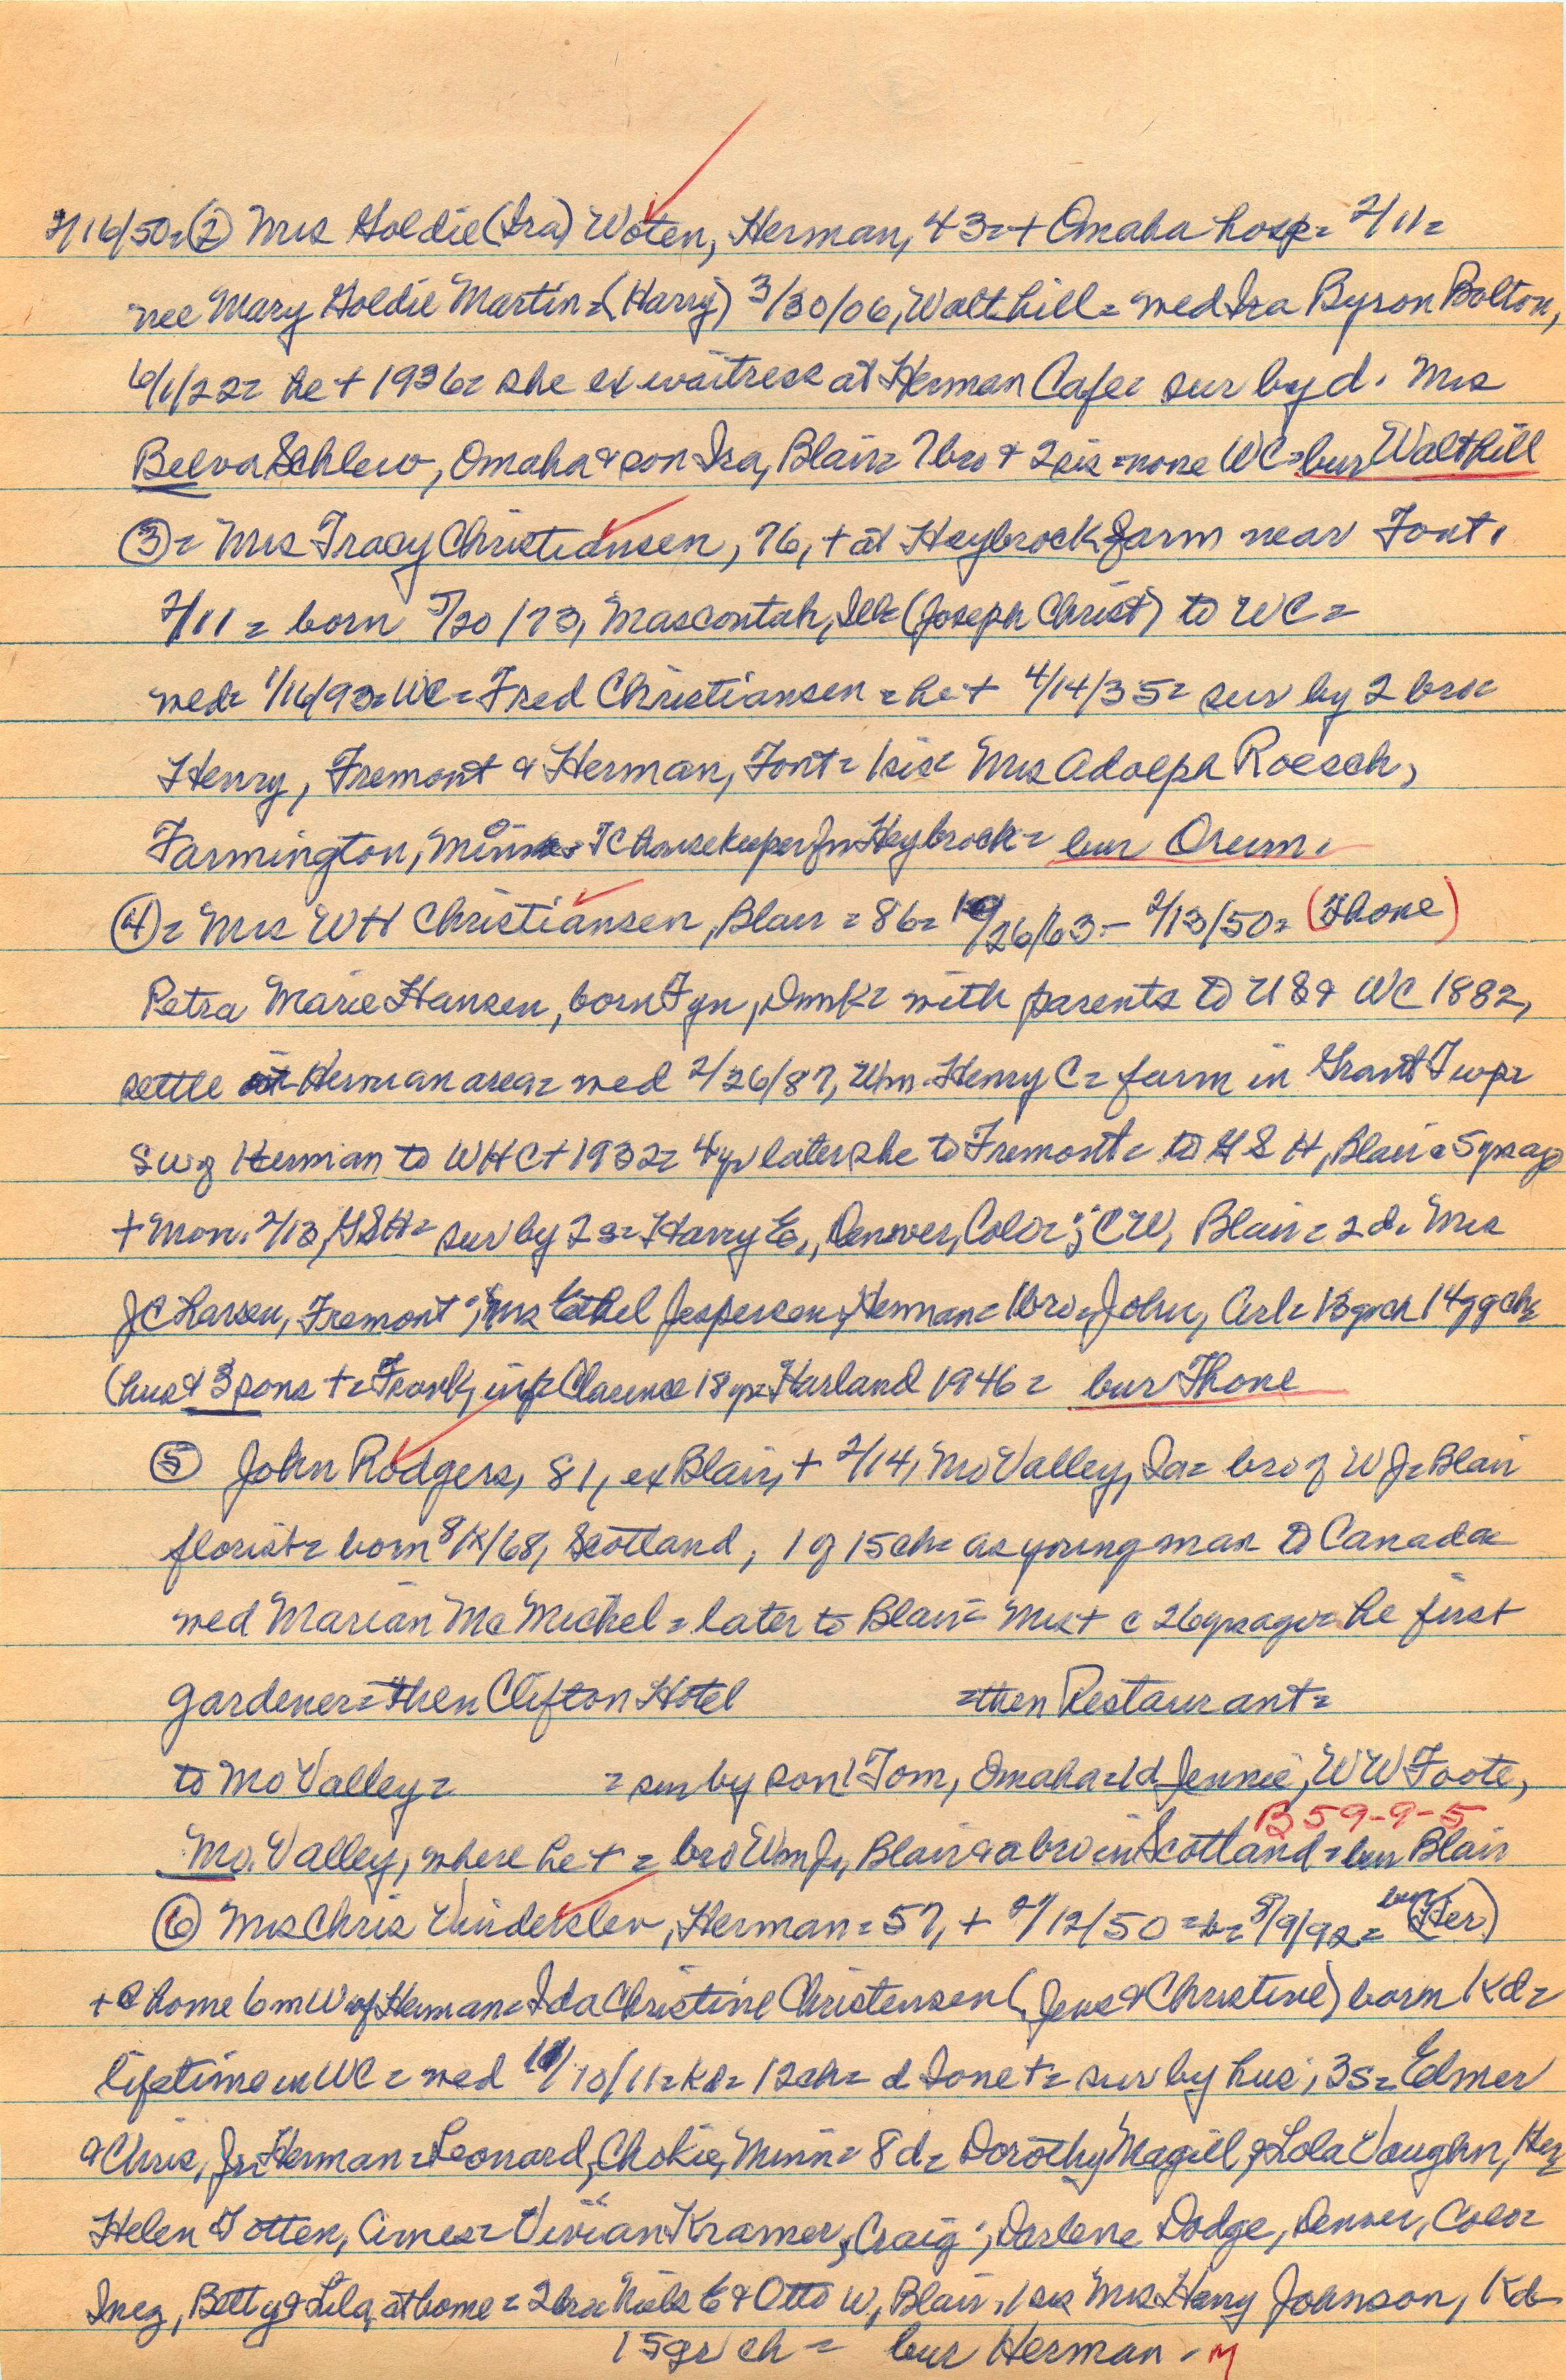 2/16/50= (2) Mrs Goldie (Ira) Woten, Herman, 43=+ Omaha hosp= 2/11=
nee Mary Goldie Martin= (Harry) 3/30/06, Walthill= wed Ira Byron Bolton,
6/1/22= he + 1936= she ex waitress at Herman Cafe= sur by d. Mrs
Belva Schlew, Omaha & son Ira, Blair= 7 bro & 2 sis =none WC= bur Walthill
(3)= Mrs Tracy Christiansen, 76, + at Heybrock farm near Font.
2/11 = born 5/20/73, Mascoutah, Ill= (Joseph Christ) to WC=
wed= 1/16/93= WC= Fred Christiansen = he + 4/14/35= sur by 2 bro=
Henry, Fremont & Herman, Font= 1 sis= Mrs Adolph Roesch,
Farmington, Minn= TC housekeeper for Heybrock = bur Orum.
(4)= Mrs WH Christiansen, Blair = 86= /26/63 - 2/13/50= (Thone)
Petra Marie Hansen, born Fyn, Dmk= with parents to US & WC 1882,
settle Herman area= wed 2/26/87, Wm. Henry C= farm in Grant Twp=
SW of Herman to WHC + 1932= 4 yr later she to Fremont= to GSH, Blair c 5 yrs ago
+ Mon. 2/13, GSH= sur by 2 s= Harry E., Denver, Colo=; CW, Blair= 2 d. Mrs
JC Larsen, Fremont; Mrs Ethel Jespersen, Herman= 1 bro= John, Arl= 13 grch 14 ggch=
(hus & 3 sons += Frank, inf= Clarence 18 yr= Harland 1946= bur Thone
(5) John Rodgers, 81, ex Blair, + 2/14, Mo Valley, Ia= bro of WJ= Blair
florist= born 8/x/68, Scotland, 1 of 15 ch= as young man to Canada=
wed Marian McMickel = later to Blair= Mrs + c 26 yrs ago= he first
gardener= then Clifton Hotel =then Restaurant=
to Mo Valley= = sur by son 1 Tom, Omaha= 1 d Jennie, WW Foote,
B 59-9-5
Mo. Valley, where he + = bro Wm J., Blair & a bro in Scotland = bur Blair
(6) Mrs Chris Vinderslev, Herman= 57, + 2/12/50 = b= 8/9/92= bur (Her)
+ @ home 6 m W of Herman= Ida Christine Christensen (Jens & Christine) born Kd=
lifetime in WC = wed /10/11= Kd= 12 ch= d Ione += sur by hus; 3s= Elmer
& Chris, Jr= Herman= Leonard, Chokio, Minn= 8 d= Dorothy Magill & Lola Vaughn, Her
Helen Totten, Ames= Vivian Kramer, Craig; Darlene Dodge, Denver, Colo=
Inez, Betty & Lila, at home = 2 bro= Niels E & Otto W, Blair, 1 sis Mrs Harry Johnson, Kd
15 gr ch = bur Herman. M